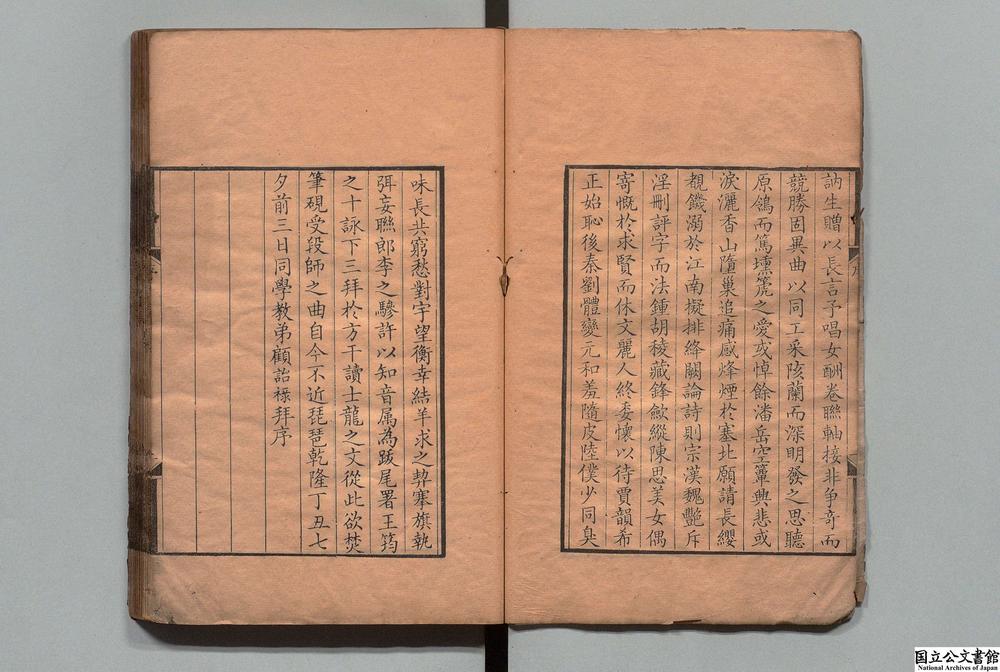 訥生贈以長言予唱女酬卷聯軸接非爭奇而
競勝固異曲以同工采陔蘭而深明發之思聽
原鴒而篤壎篪之愛或悼餘潘岳空簟興悲或
淚灑香山墮巢追痛感烽煙於塞北願請長纓
覩饑溺於江南擬排絳闕論詩則宗漢魏艷斥
淫刪評字而法鍾胡稜藏鋒歛縱陳思美女偶
寄慨於求賢而休文麗人終委懷以待賈韻希
正始恥後秦劉體變元和羞隨皮陸僕少同臭
味長共窮愁對宇望衡幸結羊求之契搴旗執
弭妄聯郎李之驂許以知音属為跋尾署王筠
之十詠下三拜於方干讀士龍之文從此欲焚
筆硯受段師之曲自今不近琵琶乾隆丁丑七
夕前三日同學教弟顧詒祿拜序
国立公文書館
National Archives of Japan